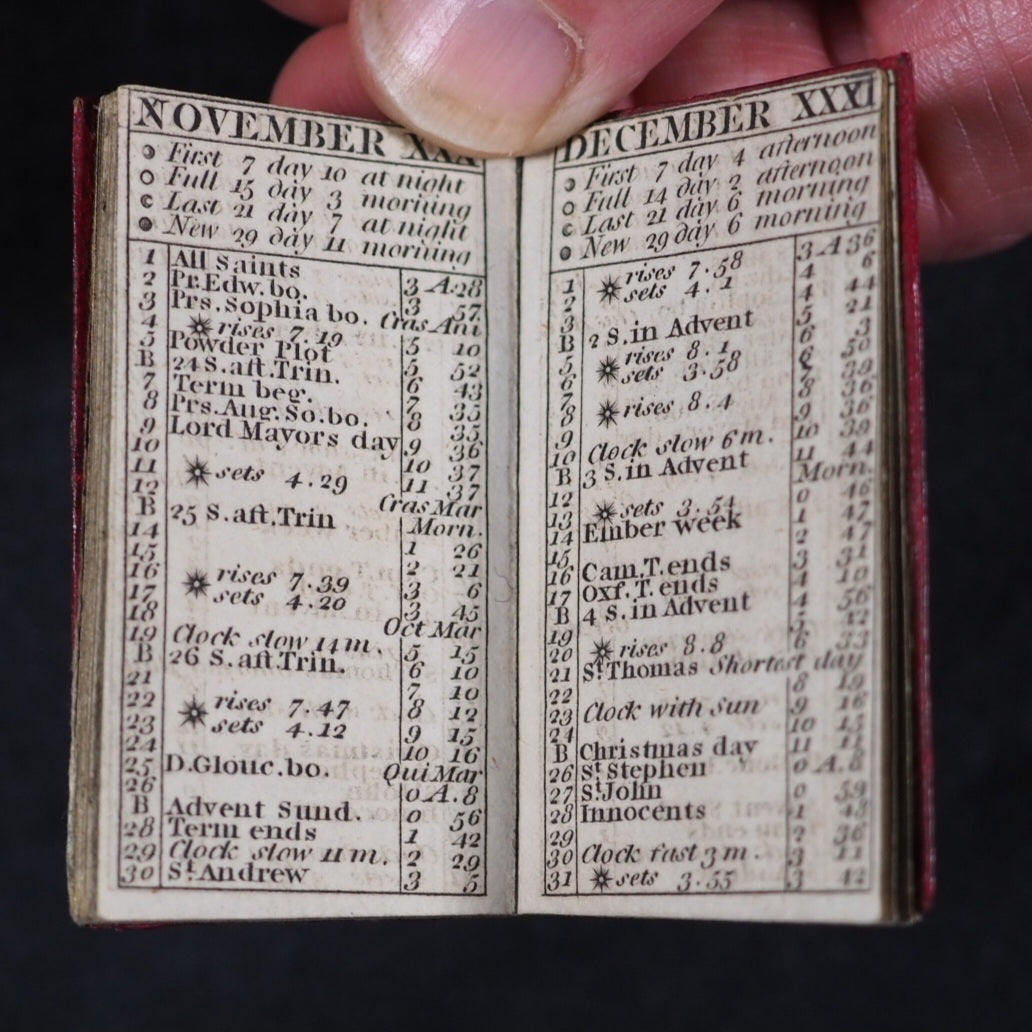 NOVEMBER XXX
First 7 day 10 at night
Full 15 day 3 morning
Last 21 day 7 at night
New 29 day 11 morning
1 All Saints
2 Pr. Edw. bo. 3 A.28
3 Prs. Sophia bo. 3 57
4 rises 7.19 Cras Ani
5 Powder Plot 5 10
B 24 S. aft. Trin. 5 52
7 Term beg. 6 43
8 Prs. Aug. So. bo. 7 35
9 Lord Mayors day 8 35
10 9 36
11 sets 4.29 10 37
12 11 37
B 25 S. aft. Trin Cras Mar
14 Morn.
15 1 26
16 rises 7.39 2 21
17 sets 4.20 3 6
18 3 45
19 Clock slow 14 m. Oct Mar
B 26 S. aft. Trin. 5 15
21 6 10
22 rises 7.47 7 10
23 sets 4.12 8 12
24 9 15
25 D. Glouc. bo. 10 16
26 Qui Mar
B Advent Sund. 0 A.8
28 Term ends 0 56
29 Clock slow 11 m. 1 42
30 St. Andrew 2 29
3 5
DECEMBER XXXI
First 7 day 4 afternoon
Full 14 day 2 afternoon
Last 21 day 6 morning
New 29 day 6 morning
1 rises 7.58 3 A 36
2 sets 4.1 4 6
3 4 44
B 2 S. in Advent 5 21
5 rises 8.1 6 3
6 sets 3.58 6 50
7 7 39
8 rises 8.4 8 36
9 9 36
10 Clock slow 6 m. 10 39
B 3 S. in Advent 11 44
12 Morn.
13 sets 3.54 0 46
14 Ember week 1 47
15 2 47
16 Cam. T. ends 3 31
17 Oxf. T. ends 4 10
B 4 S. in Advent 4 56
19
20 rises 8.8 6 33
21 St. Thomas Shortest day
22 8 19
23 Clock with Sun 9 16
24 10 15
B Christmas day 11
26 St. Stephen 0 A.8
27 St. John 0 59
28 Innocents 1 48
29 2 36
30 Clock fast 3 m. 3 11
31 sets 3.55 3 42